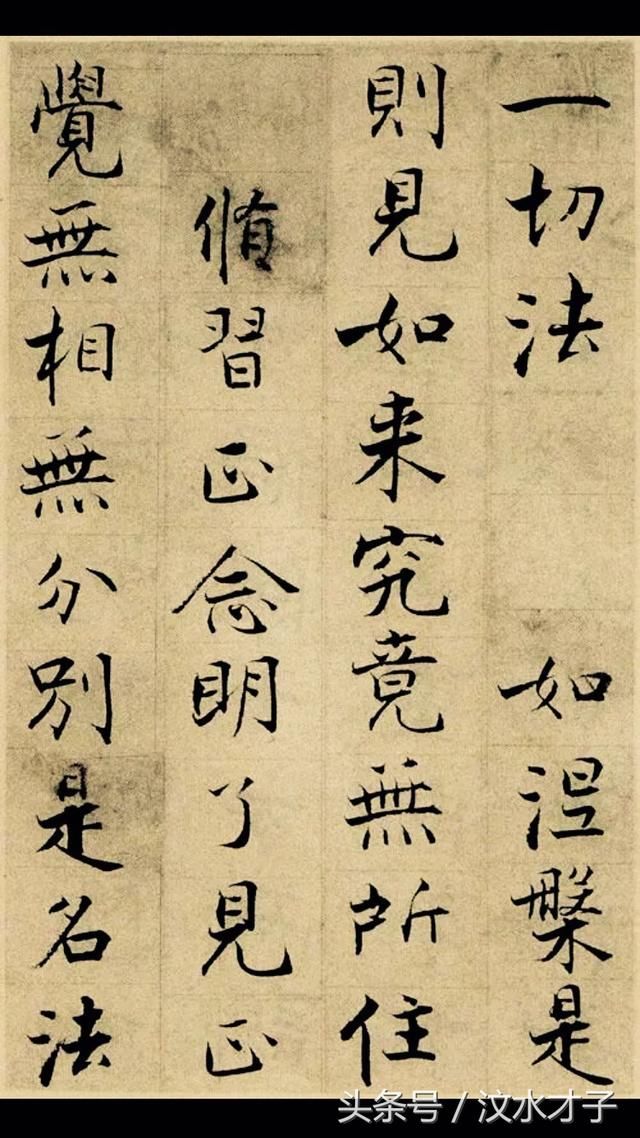 一切法 如涅槃是
則見如来究竟無所住
脩習正念明了見正
覺無相無分別是名法
头条号 / 汶水才子